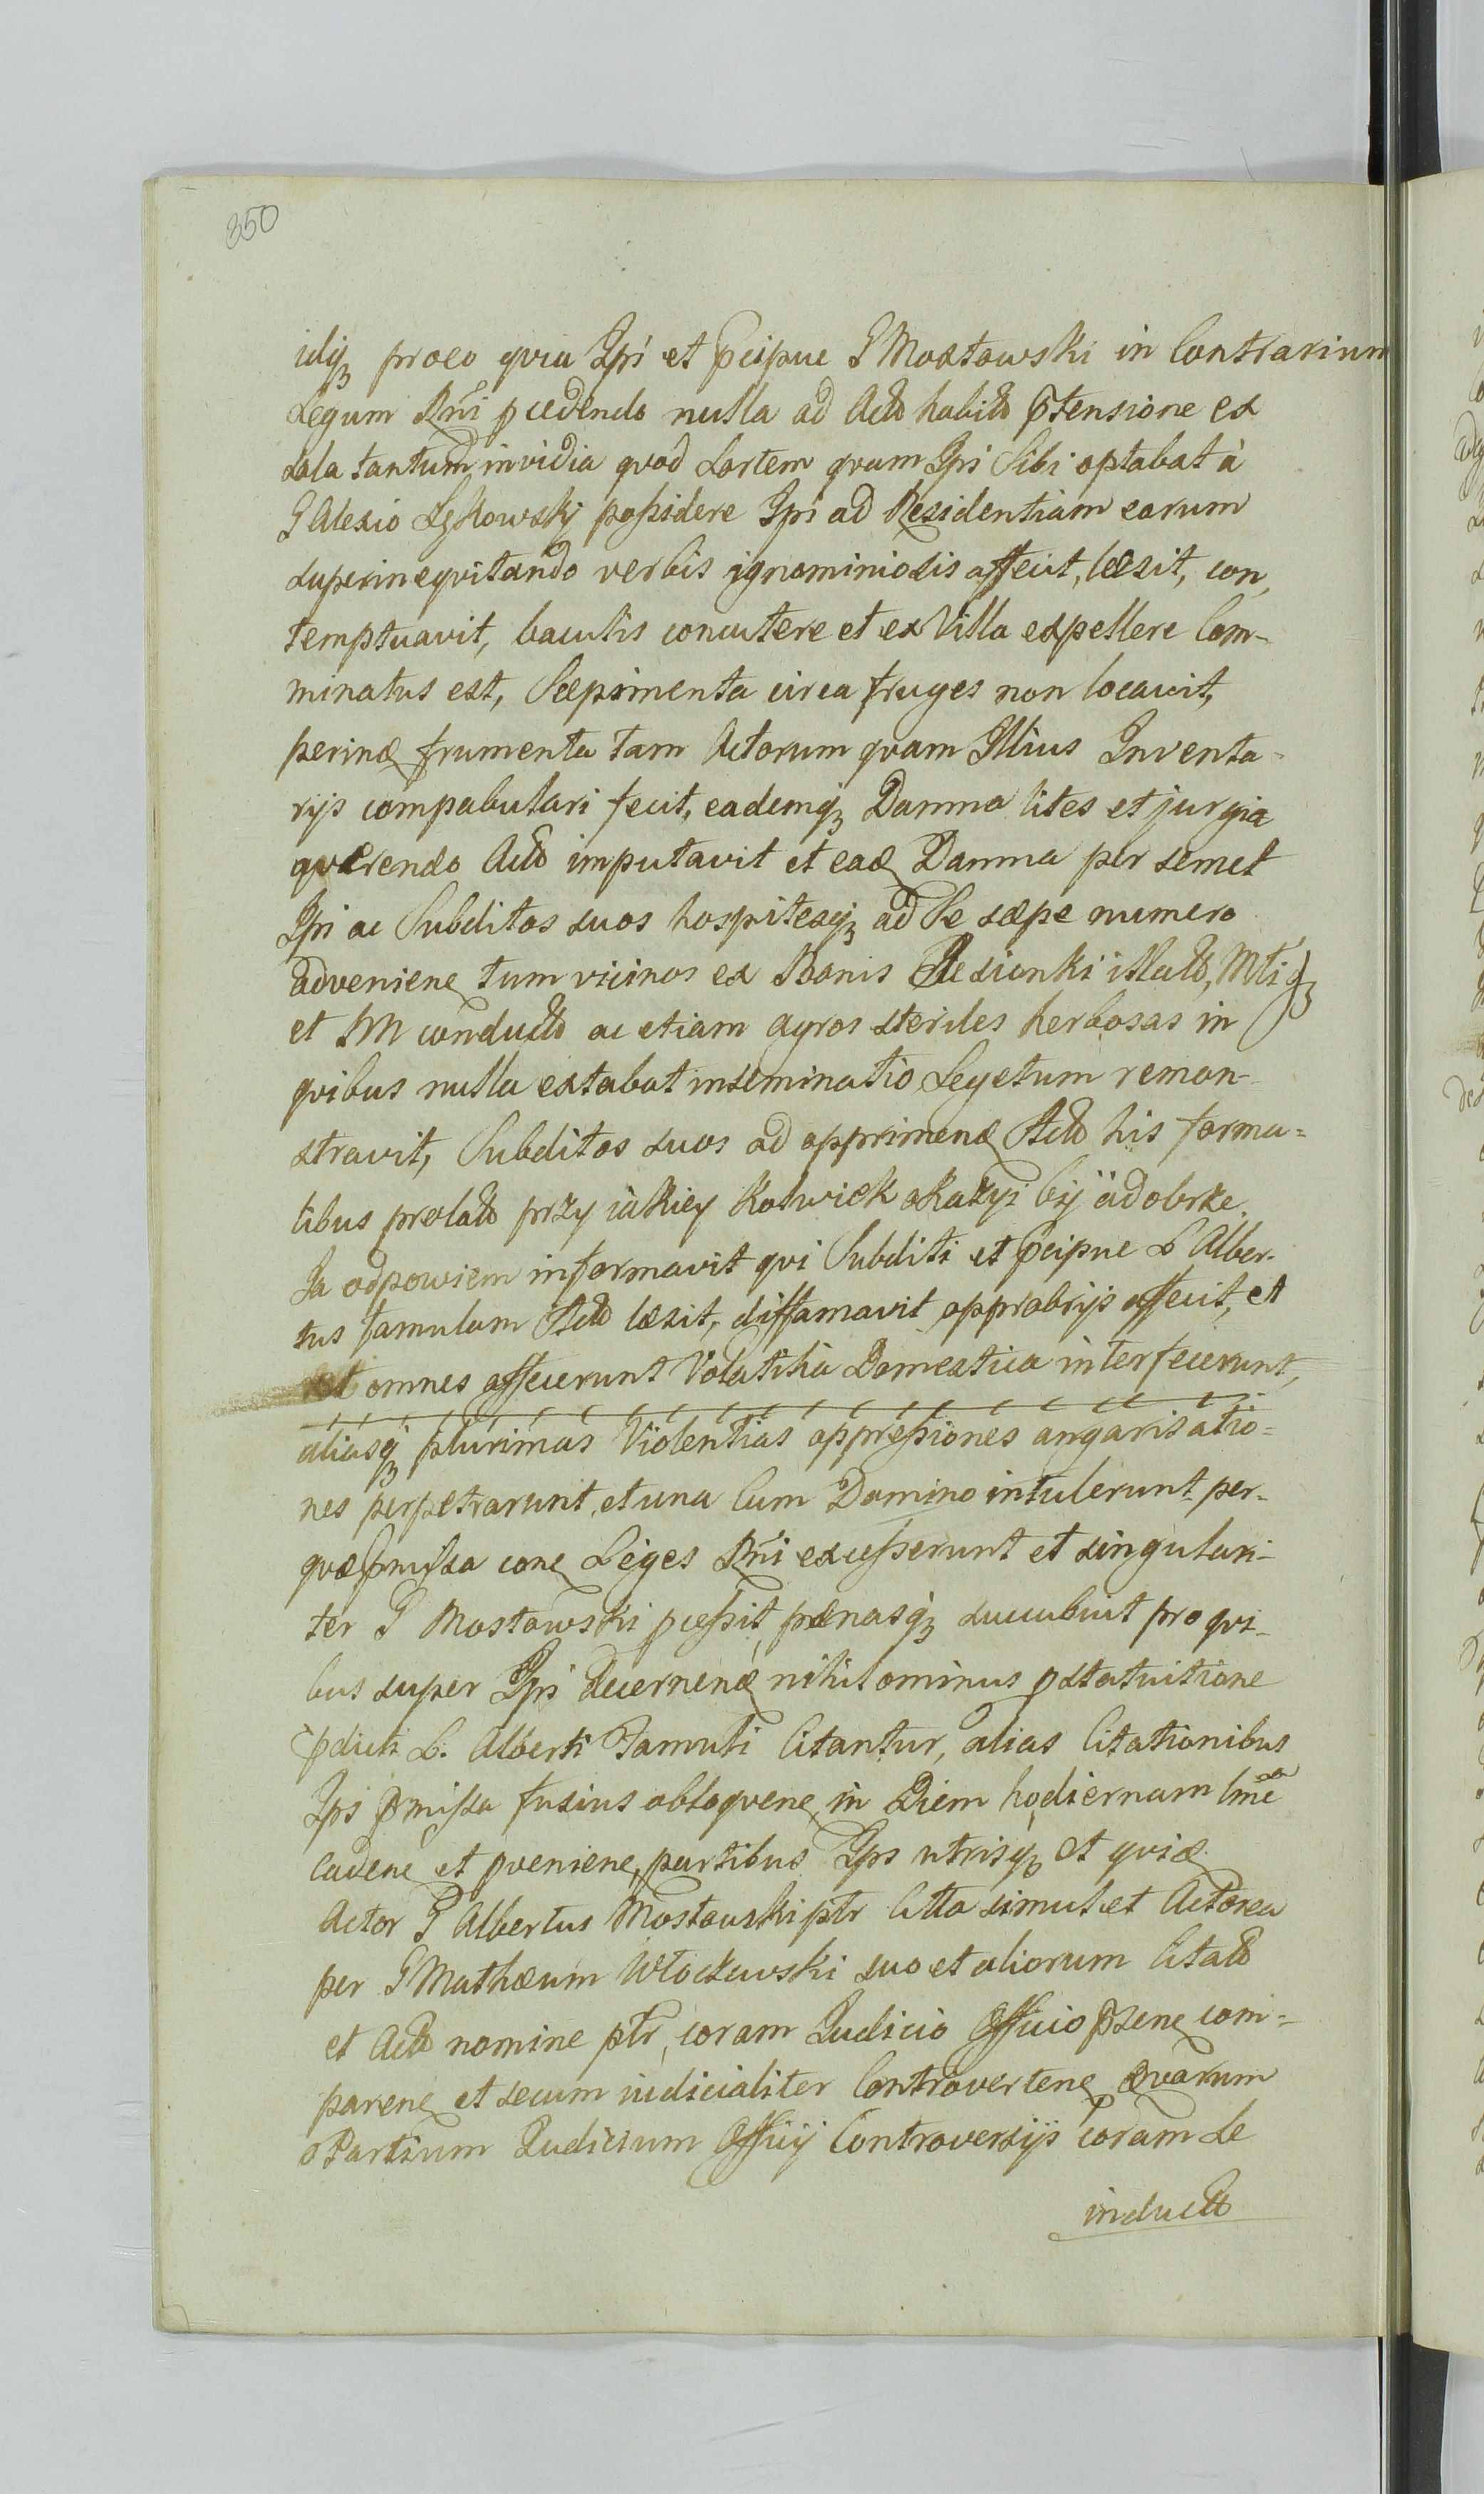 350
idq3 proeo qvia Ipsi et p̃cipue G Mostowski in Contrarium
Legum Rñi pcedendo nulla ad Acto habito p̃tensione ex
sola tantum invidia qvod Sortem qvam Ipsi Sibi optabat à
G Alexio Lękowskj possidere Ipsi ad Residentiam eorum
superineqvitando verbis ignominiosis affecit, læsit, con,
temptuavit, baculis concutere et ex Villa expellere Com-
minatus est, Sæpimenta circa fruges non locavit,
perinde frumenta tam Actorum qvam Illius Inventa-
rijs compabulari fecit, eademq3 Damna lites et jurgia
qværendo Acto imputavit et ead Damna per semet
Ipsi ac Subditos suos hospitesq3 ad Se sæpe numero
advenien tum vicinos ex Bonis illato, Mtiq3
et M conducto ac etiam agros steriles herbosas in
qvibus nulla extabat inseminatio Segetum remon-
stravit, Subditos suos ad opprimend Acto his forma=
libus prolato przy iàkiey kolwiek okazyi biÿ adobrze.
Ja odpowiem informavit qvi Subditi et p̃cipue L Alber-
tus famulum Acto læsit, diffamavit opprobrijs affecit, et
et omnes affecerunt Volatilia Domestica interfecerunt,
aliasq3 plurimas Violentias oppressiones angarisatio=
nes perpetrarunt, et una Cum Domino intulerunt per-
qvæ p̃missa con Leges Rñi excesserunt et singulari-
ter G Mostowski pcessit, pænasq3 succubuit pro qvi-
bus super Ipsi decernend nihilominus pstatuitione
p̃dicti L. Alberti Famuli Citantur, alias Citationibus
Ipsi p̃missa fusius obloqven in Diem hodiernam
Caden et pvenien, partibus Ips utrisq3 et qvid
Actor G Albertus Mostowski ptr Citta simul et Actorea
per G Mathæum Włoczewski suo et aliorum Citato
et Acto nomine ptr, coram Judicio Officio p̃sen com=
paren et secum iudicialiter Controverten, qvarum
Partium Judicium Officij Controversijs coram Se
inducto